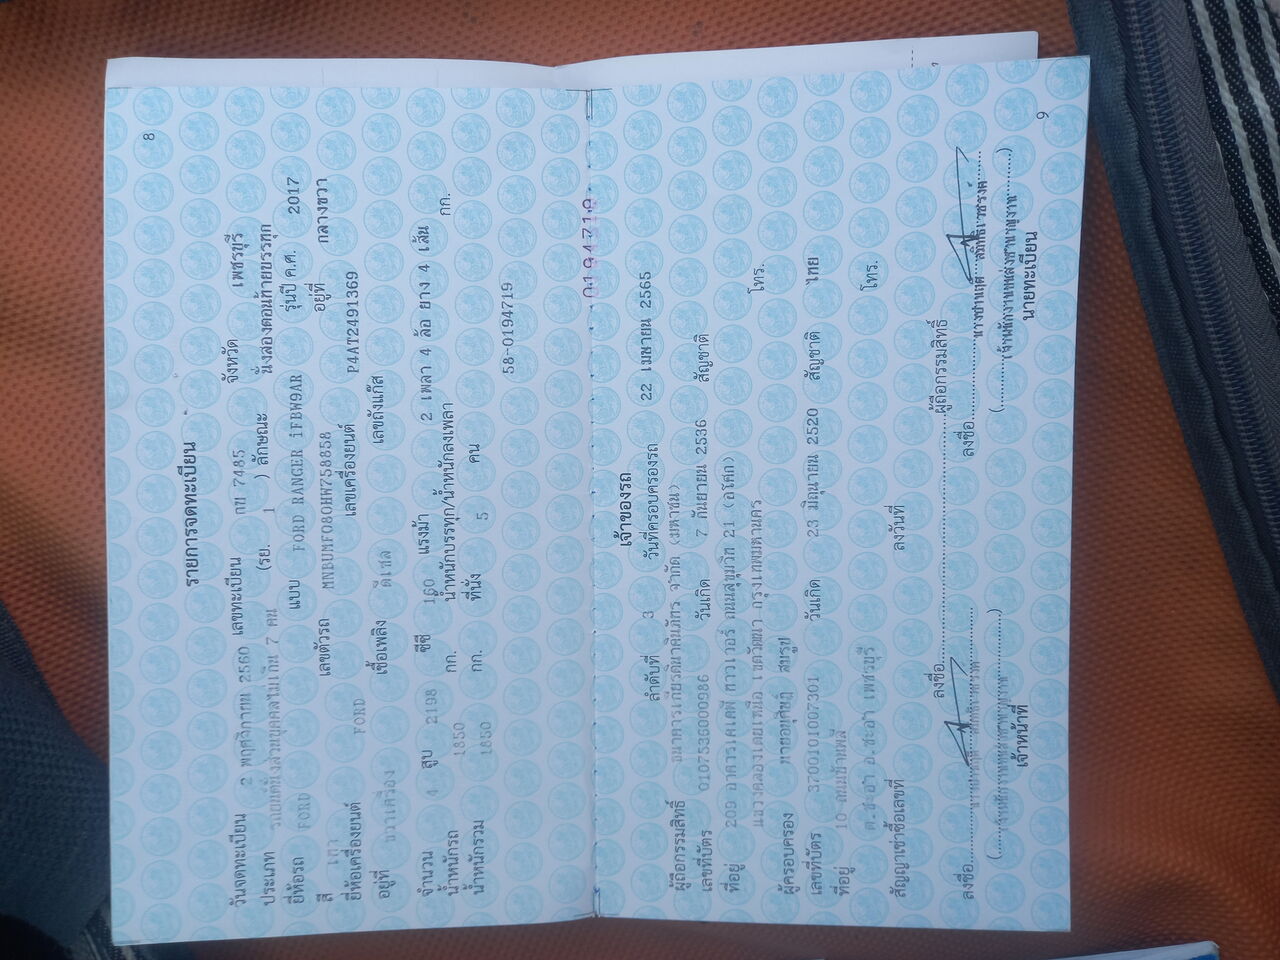 8
รายการจดทะเบียน
วันจดทะเบียน 2 พฤศจิกายน 2560 เลขทะเบียน กข 7485 จังหวัด เพชรบุรี
ประเภท รถยนต์นั่งส่วนบุคคลไม่เกิน 7 คน (รย. 1 ) ลักษณะ นั่งสองตอนท้ายบรรทุก
ยี่ห้อรถ FORD แบบ FORD RANGER 1FBW9AR รุ่นปี ค.ศ. 2017
สี เทา เลขตัวรถ MNBUMF080HW758858 อยู่ที่ กลางขวา
ยี่ห้อเครื่องยนต์ FORD เลขเครื่องยนต์ P4AT2491369
อยู่ที่ ขวาเครื่อง เชื้อเพลิง ดีเซล เลขถังแก๊ส
จำนวน 4 สูบ 2198 ซีซี 160 แรงม้า 2 เพลา 4 ล้อ ยาง 4 เส้น
น้ำหนักรถ 1850 กก. น้ำหนักบรรทุก/น้ำหนักลงเพลา กก.
น้ำหนักรวม 1850 กก. ที่นั่ง 5 คน
58-0194719
0194719
เจ้าของรถ
ลำดับที่ 3 วันที่ครอบครองรถ 22 เมษายน 2565
ผู้ถือกรรมสิทธิ์ ธนาคารเกียรตินาคินภัทร จำกัด (มหาชน)
เลขที่บัตร 0107536000986 วันเกิด 7 กันยายน 2536 สัญชาติ
ที่อยู่ 209 อาคารเคเคพี ทาวเวอร์ ถนนสุขุมวิท 21 (อโศก)
แขวงคลองเตยเหนือ เขตวัฒนา กรุงเทพมหานคร โทร.
ผู้ครอบครอง
เลขที่บัตร 3700101007301 วันเกิด 23 มิถุนายน 2520 สัญชาติ ไทย
ที่อยู่ 10
ต.ชะอำ อ.ชะอำ เพชรบุรี โทร.
สัญญาเช่าซื้อเลขที่ ลงวันที่
ลงชื่อ ผู้ถือกรรมสิทธิ์
ลงชื่อ ลงชื่อ
เจ้าหน้าที่ นายทะเบียน
9